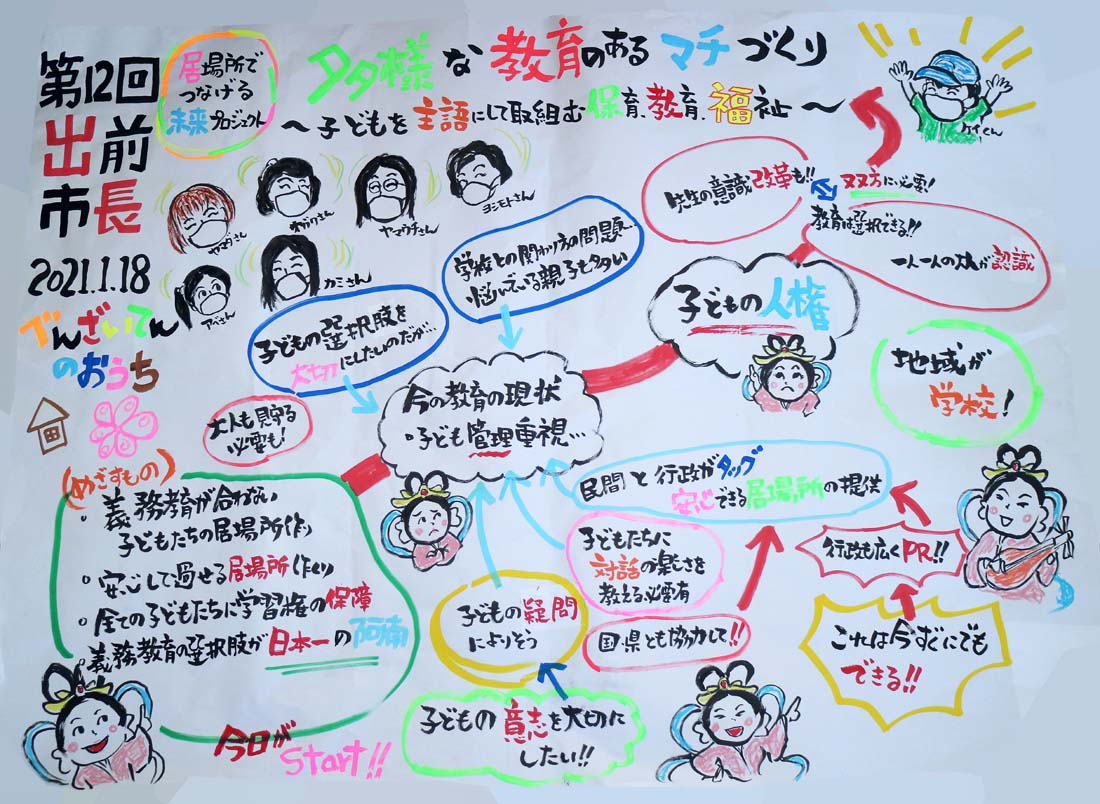 第12回
出前
市長
2021.1.18
でんざいてん
のおうち
居場所で
つなげる
未来プロジェクト
多様な教育のあるマチづくり
～子どもを主語にして取組む保育、教育、福祉～
ケイくん
ヤマダさん
オガワさん
ヤマウチさん
ヨシモトさん
アベさん
カミさん
先生の意識改革も!!
双方に必要!
教育は選択できる!!
一人一人の大人が認識
学校との関わり方の問題…
悩んでいる親子も多い
子どもの選択肢を
大切にしたいのだが…
子どもの人権
地域が
学校!
今の教育の現状
・子ども管理重視…
大人も見守る
必要も!
(めざすもの)
・義務教育が合わない
子どもたちの居場所作り
・安心して過せる居場所作り
・全ての子どもたちに学習権の保障
・義務教育の選択肢が日本一の阿南
今日が
Start!!
民間と行政がタッグ
安心できる居場所の提供
行政も広くPR!!
これは今すぐにでも
できる!!
子どもたちに
対話の楽しさを
教える必要有
国・県とも協力して!!
子どもの疑問
によりそう
子どもの意志を大切に
したい!!